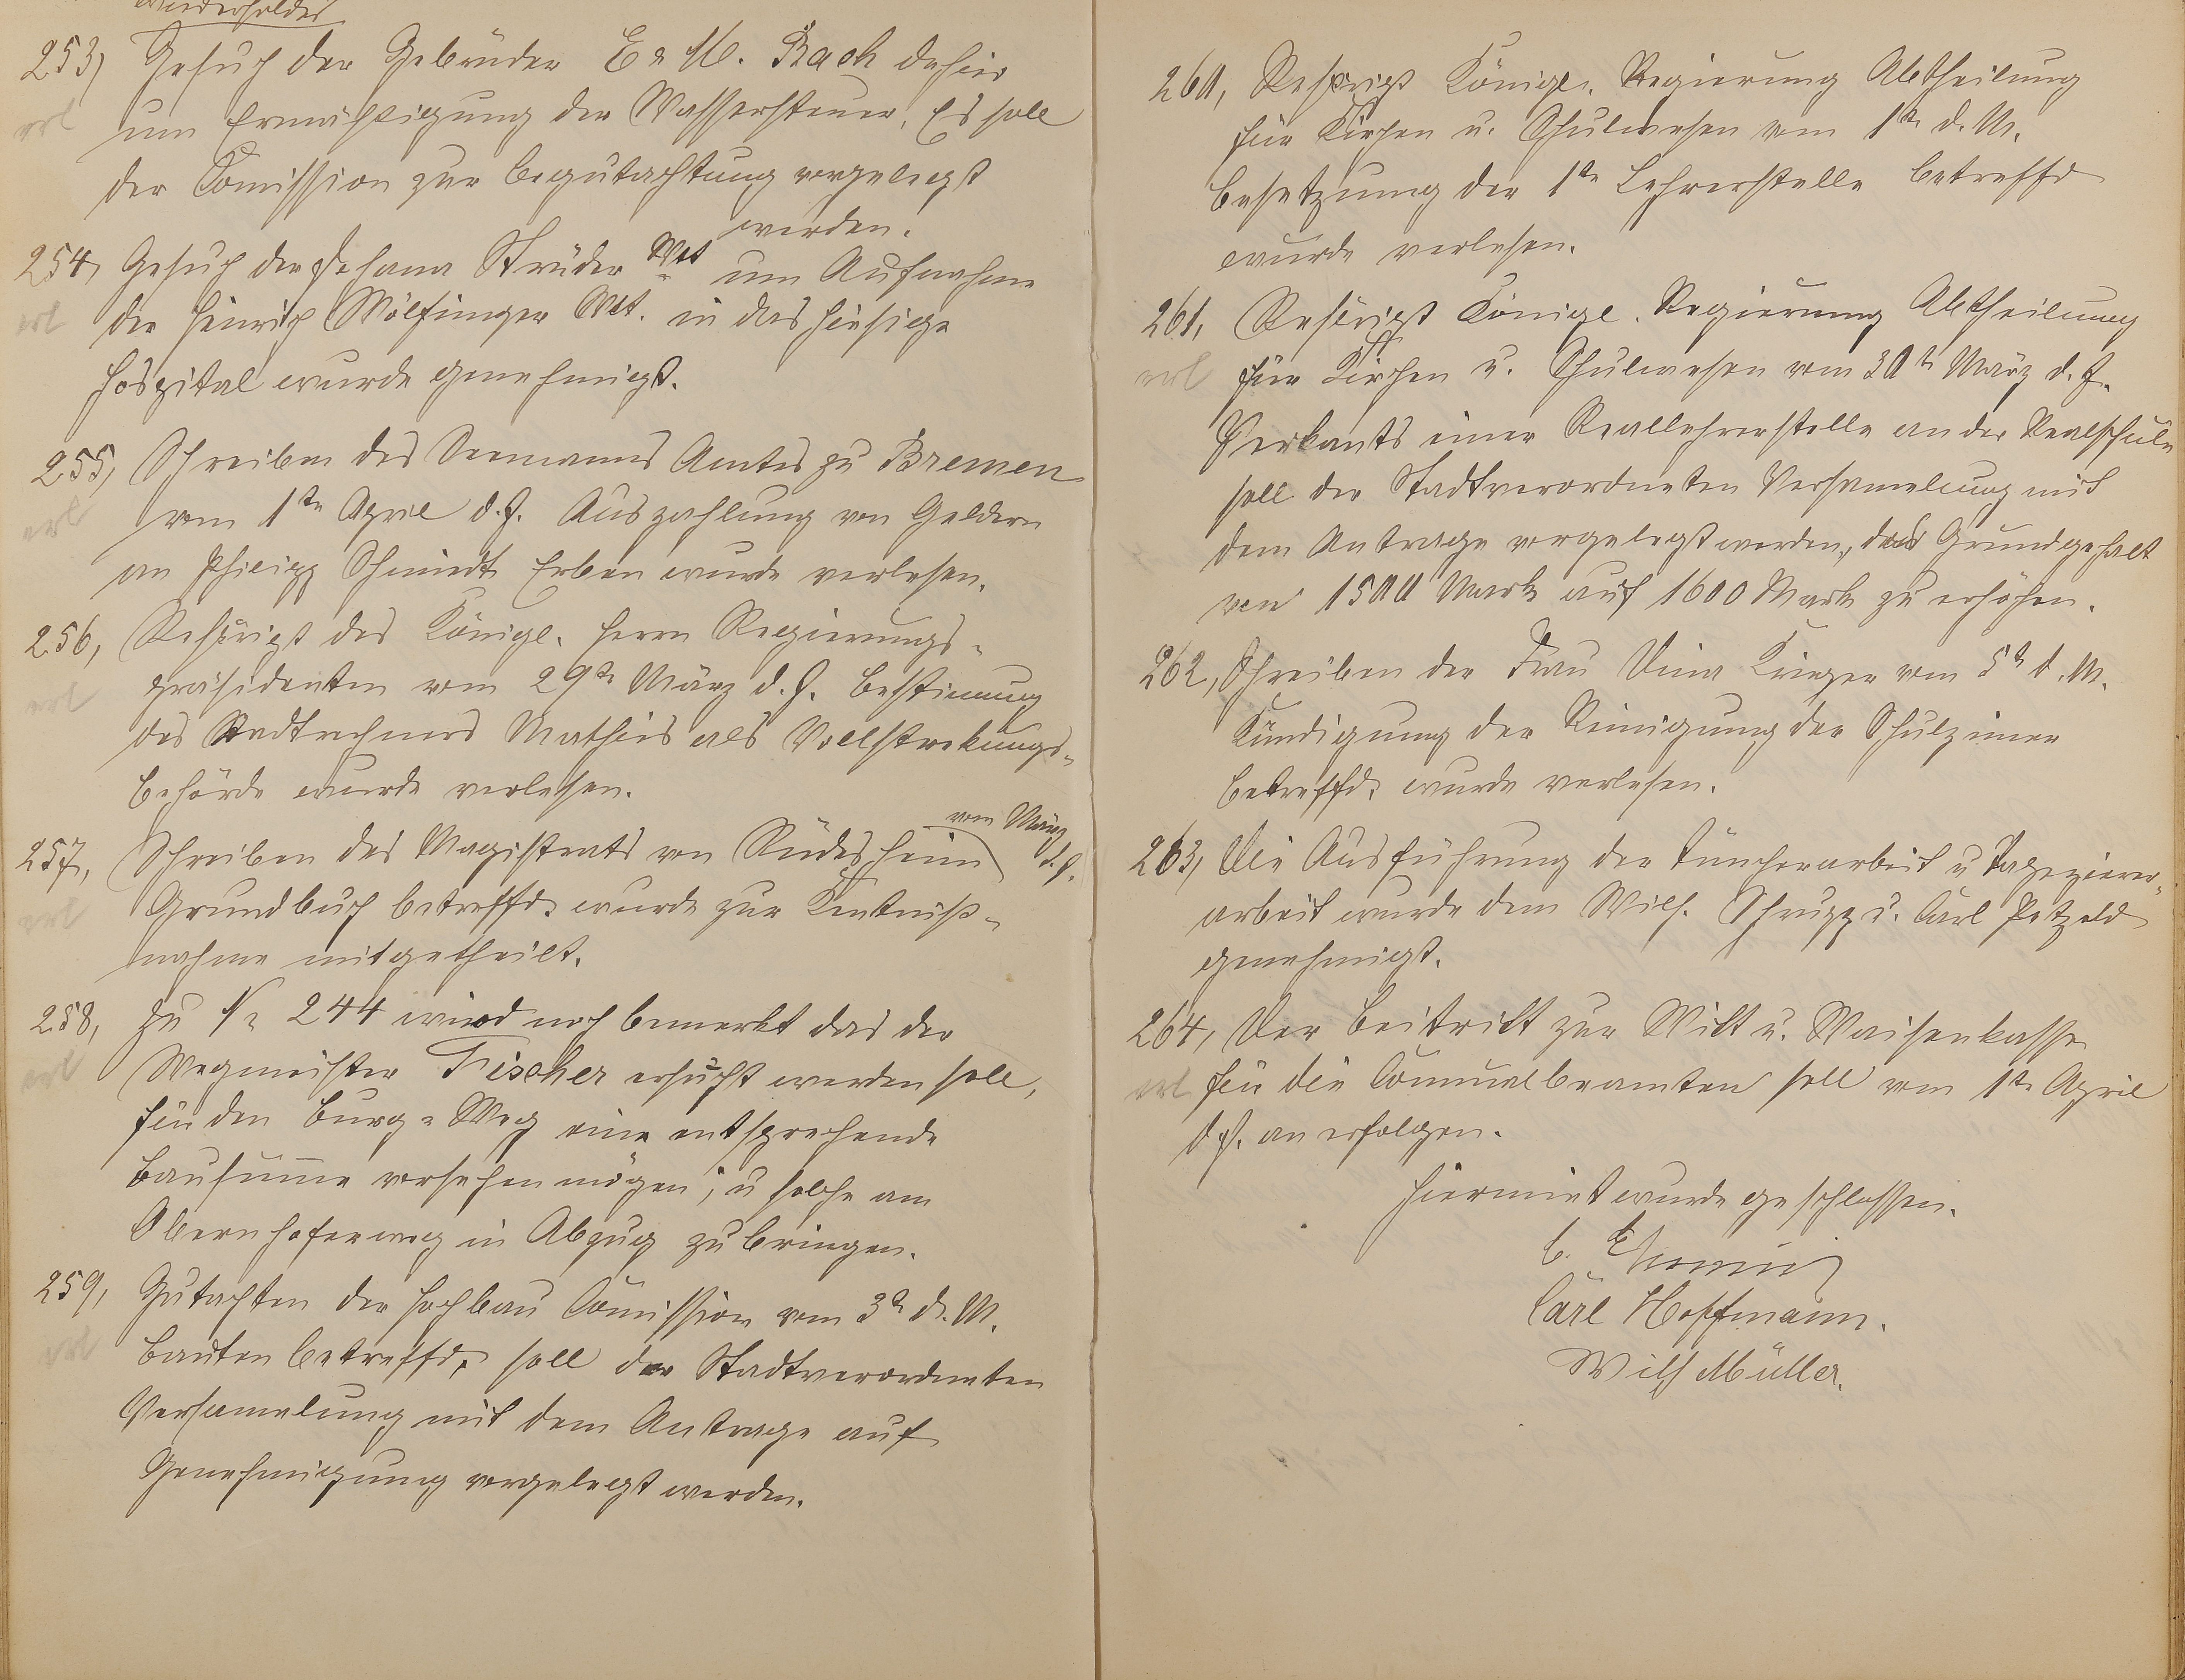 wiederholdes
253, Gesuch der Gebrüder E & M. Bach dahier
erl um Ermäßigung der Wassersteuer. Es soll
der Comission zur Begutachtung vorgelegt
werden.
254, Gesuch der Johann Strüder Wtt um Aufnahme
erl der Heinrich Wölfinger Wtt. in das hiesige
Hospital wurde genehmigt.
255, Schreiben des Seemanns Amtes zu Bremen
erl vom 1ten April d. J. Auszahlung von Geldern
an Philipp Schmidt Erben wurde verlesen.
256, Reskript des Königl. Herrn Regierungs-
erl präsidenten vom 29ten März d. J. Bestimung
des Stadtrechners Mathies als Vollstrekungs-
behörde wurde verlesen.
vom März
257, Schreiben des Magistrats von Rüdesheim d. J.
erl Grundbuch betreffd. wurde zur Kentniß-
nahme mitgetheilt.
258, Zu No 244 wird noch bemerkt das der
erl Wegmeister Fischer ersucht werden soll,
für den Burg-Weg eine entsprechende
Bausume vorsehen mögen, u solche am
Obernhoferweg in Abzug zu bringen.
259, Gutachten der Hochbau Comission vom 3t d. M.
erl Bauten betreffd. soll der Stadtverordneten
Versamelung mit dem Antrage auf
Genehmigung vorgelegt werden.
260, Reskript Königl. Regierung Abtheilung
für Kirchen u. Schulwesen vom 1ten d. M.
Besetzung der 1te Lehrerstelle betreffd
wurde verlesen.
261, Reskript Königl. Regierung Abtheilung
erl für Kirchen u. Schulwesen vom 30t März d. J.
einer Reallehrerstelle an der Realschule
soll der Stadtverordneten Versamelung mit
dem Antrage vorgelegt werden, das Grundgehalt
von 1500 Mark auf 1600 Mark zu erhöhen.
262, Schreiben der Frau Dina Krieger vom 5t d. M.
Kündigung der Reinigung der Schulzimer
betreffd. wurde verlesen.
263, Die Ausführung der Tüncherarbeit u Tapezierer-
arbeit wurde dem Wilh. Schrupp u. Carl Petzold
genehmigt.
264, Der Beitritt zur Witt u. Waisenkasse
erl für die Comunalbeamten soll vom 1ten April
d. J. an erfolgen.
Hiermit wurde geschlossen.
Carl Hoffmann.
Wilh Müller.